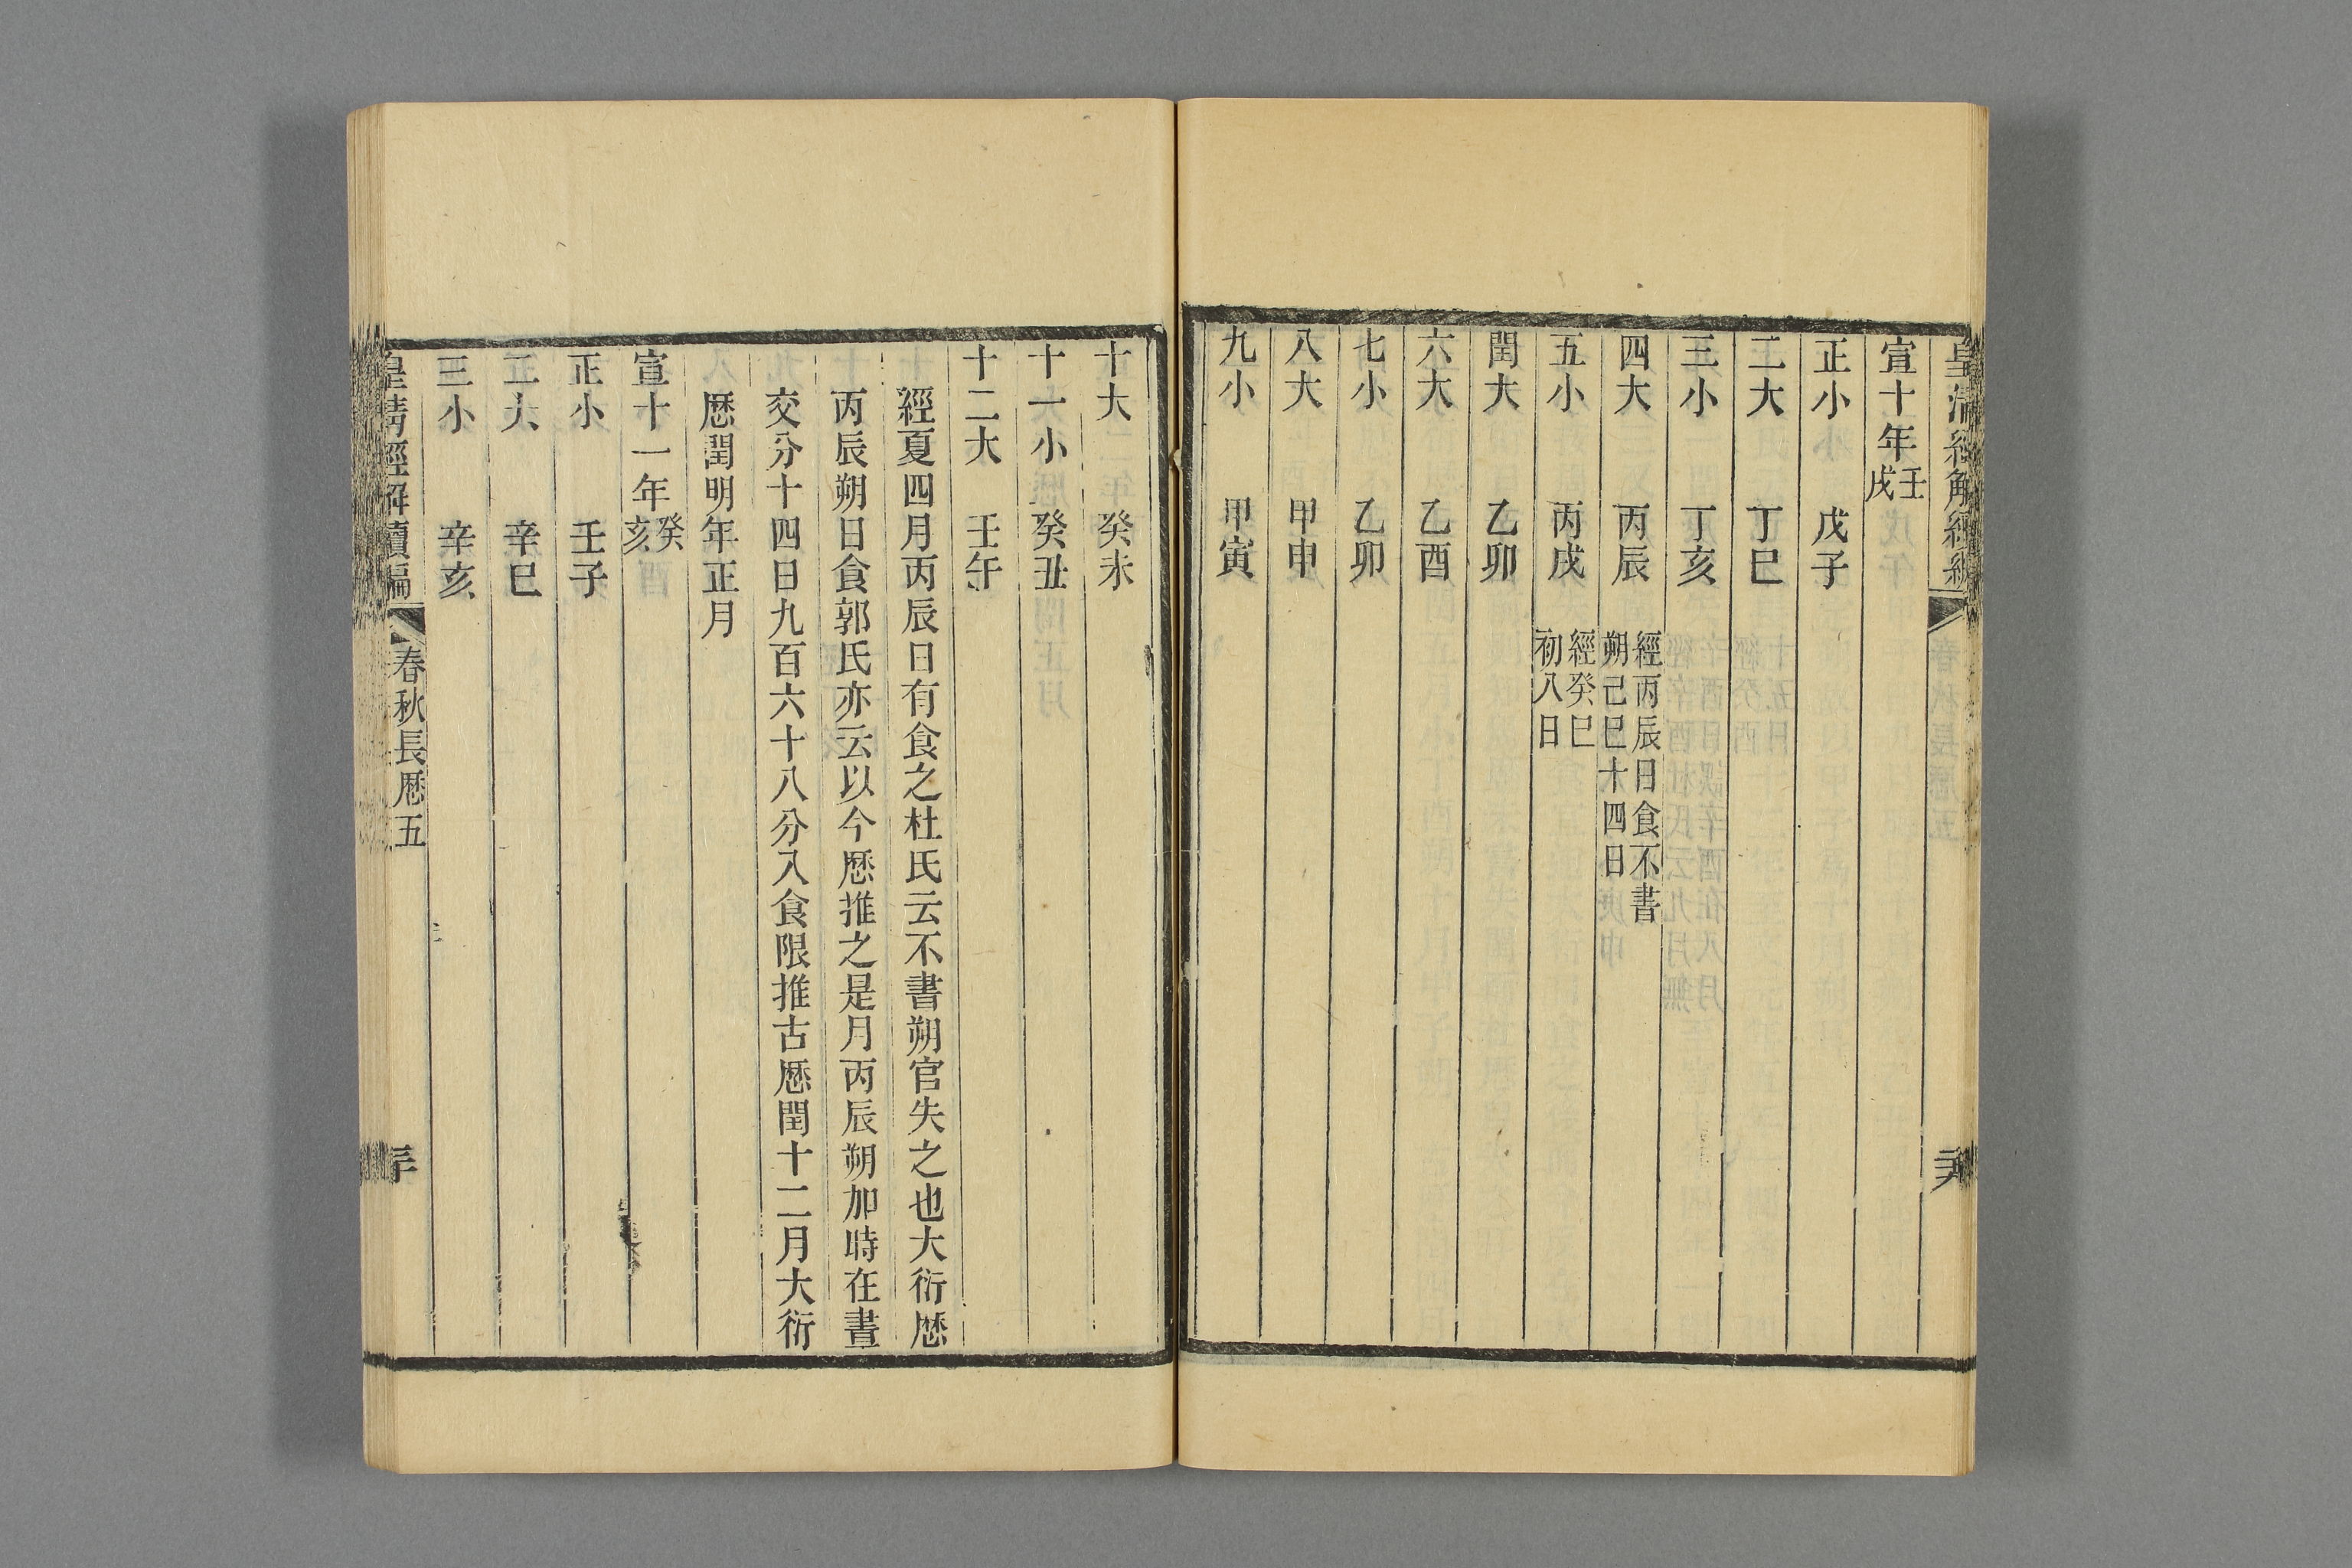 宣十年壬戌
正小 戊子
二大 丁巳
三小 丁亥
四大 丙辰 經丙辰日食不書
朔己巳十四日
五小 丙戌 經癸巳
初八日
閏大 乙卯
六大 乙酉
七小 乙卯
八大 甲申
九小 甲寅
十大 癸未
十一小 癸丑
十二大 壬午
經夏四月丙辰日有食之杜氏云不書朔官失之也大衍厯
丙辰朔日食郭氏亦云以今厯推之是月丙辰朔加時在晝
交分十四日九百六十八分入食限推古厯閏十二月大衍
厯閏明年正月
宣十一年癸亥
正小 壬子
二大 辛巳
三小 辛亥
皇清經解續編 春秋長厯五